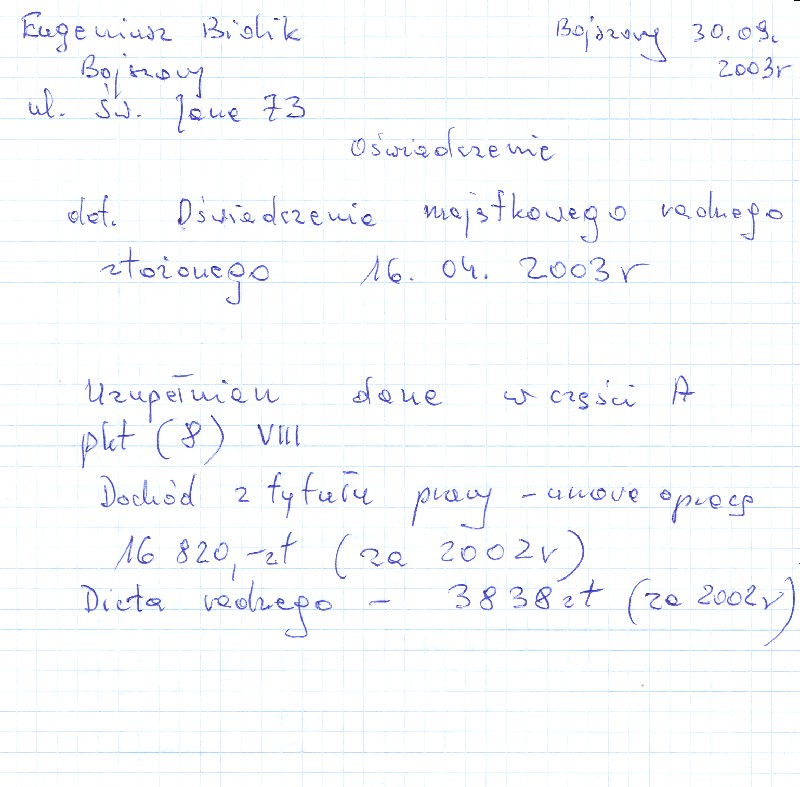 Eugeniusz Biolik
Bojszowy 30.09.
2003r
Bojszowy
ul. św. Jana 73
Oświadczenie
dot. Oświadczenia majątkowego radnego
złożonego 16. 04. 2003r
Uzupełniam dane w części A
pkt (8) VIII
Dochód z tytułu pracy - umowa o pracę
16 820,-zł (za 2002r)
Dieta radnego - 3838zł (za 2002r)